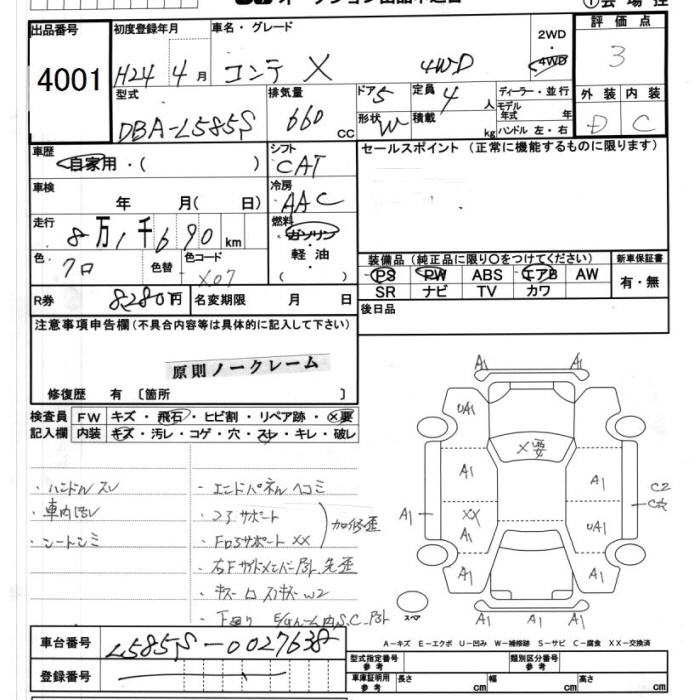 出品番号 初度登録年月 車名・グレード 評価点
4001 H24年4月 コンテ X 4WD 2WD 4WD 3
型式 排気量 ドア 5 定員 4人 ディーラー・並行 外装 内装
DBA-L585S 660cc 形状 W 積載 kg モデル年式 年 ハンドル 左・右 D C
車歴 シフト セールスポイント (正常に機能するものに限ります)
自家用・( ) CAT
車検 冷房
年 月( 日) AAC
走行 燃料
8万1千690km ガソリン・軽油・( )
色 クロ 色替 色コード X07
装備品 (純正品に限り○をつけてください) 新車保証書
PS PW ABS エアB AW 有・無
SR ナビ TV カワ
R券 8280円 名変期限 月 日
後日品
注意事項申告欄 (不具合内容等は具体的に記入して下さい)
原則ノークレーム
修復歴 有 〔箇所 〕
検査員 FW キズ・飛石・ヒビ割・リペア跡・X要
記入欄 内装 キズ・汚レ・コゲ・穴・スレ・キレ・破レ
・ハンドルスレ
・車内汚レ
・シートシミ
・エンドパネルヘコミ
・コアサポート
・FロアサポートXX
・下廻り
A1 A1
UA1 A1
X要
A1 A1 C2
A1 XX A1 UA1
A1 A1
スペア A1 A1 A1
A-キズ E-エクボ U-凹み W-補修跡 S-サビ C-腐食 XX-交換済
車台番号 L585S-0027638
登録番号
型式指定番号 参考 類別区分番号 参考
車庫証明用 参考 長さ cm 幅 cm 高さ cm